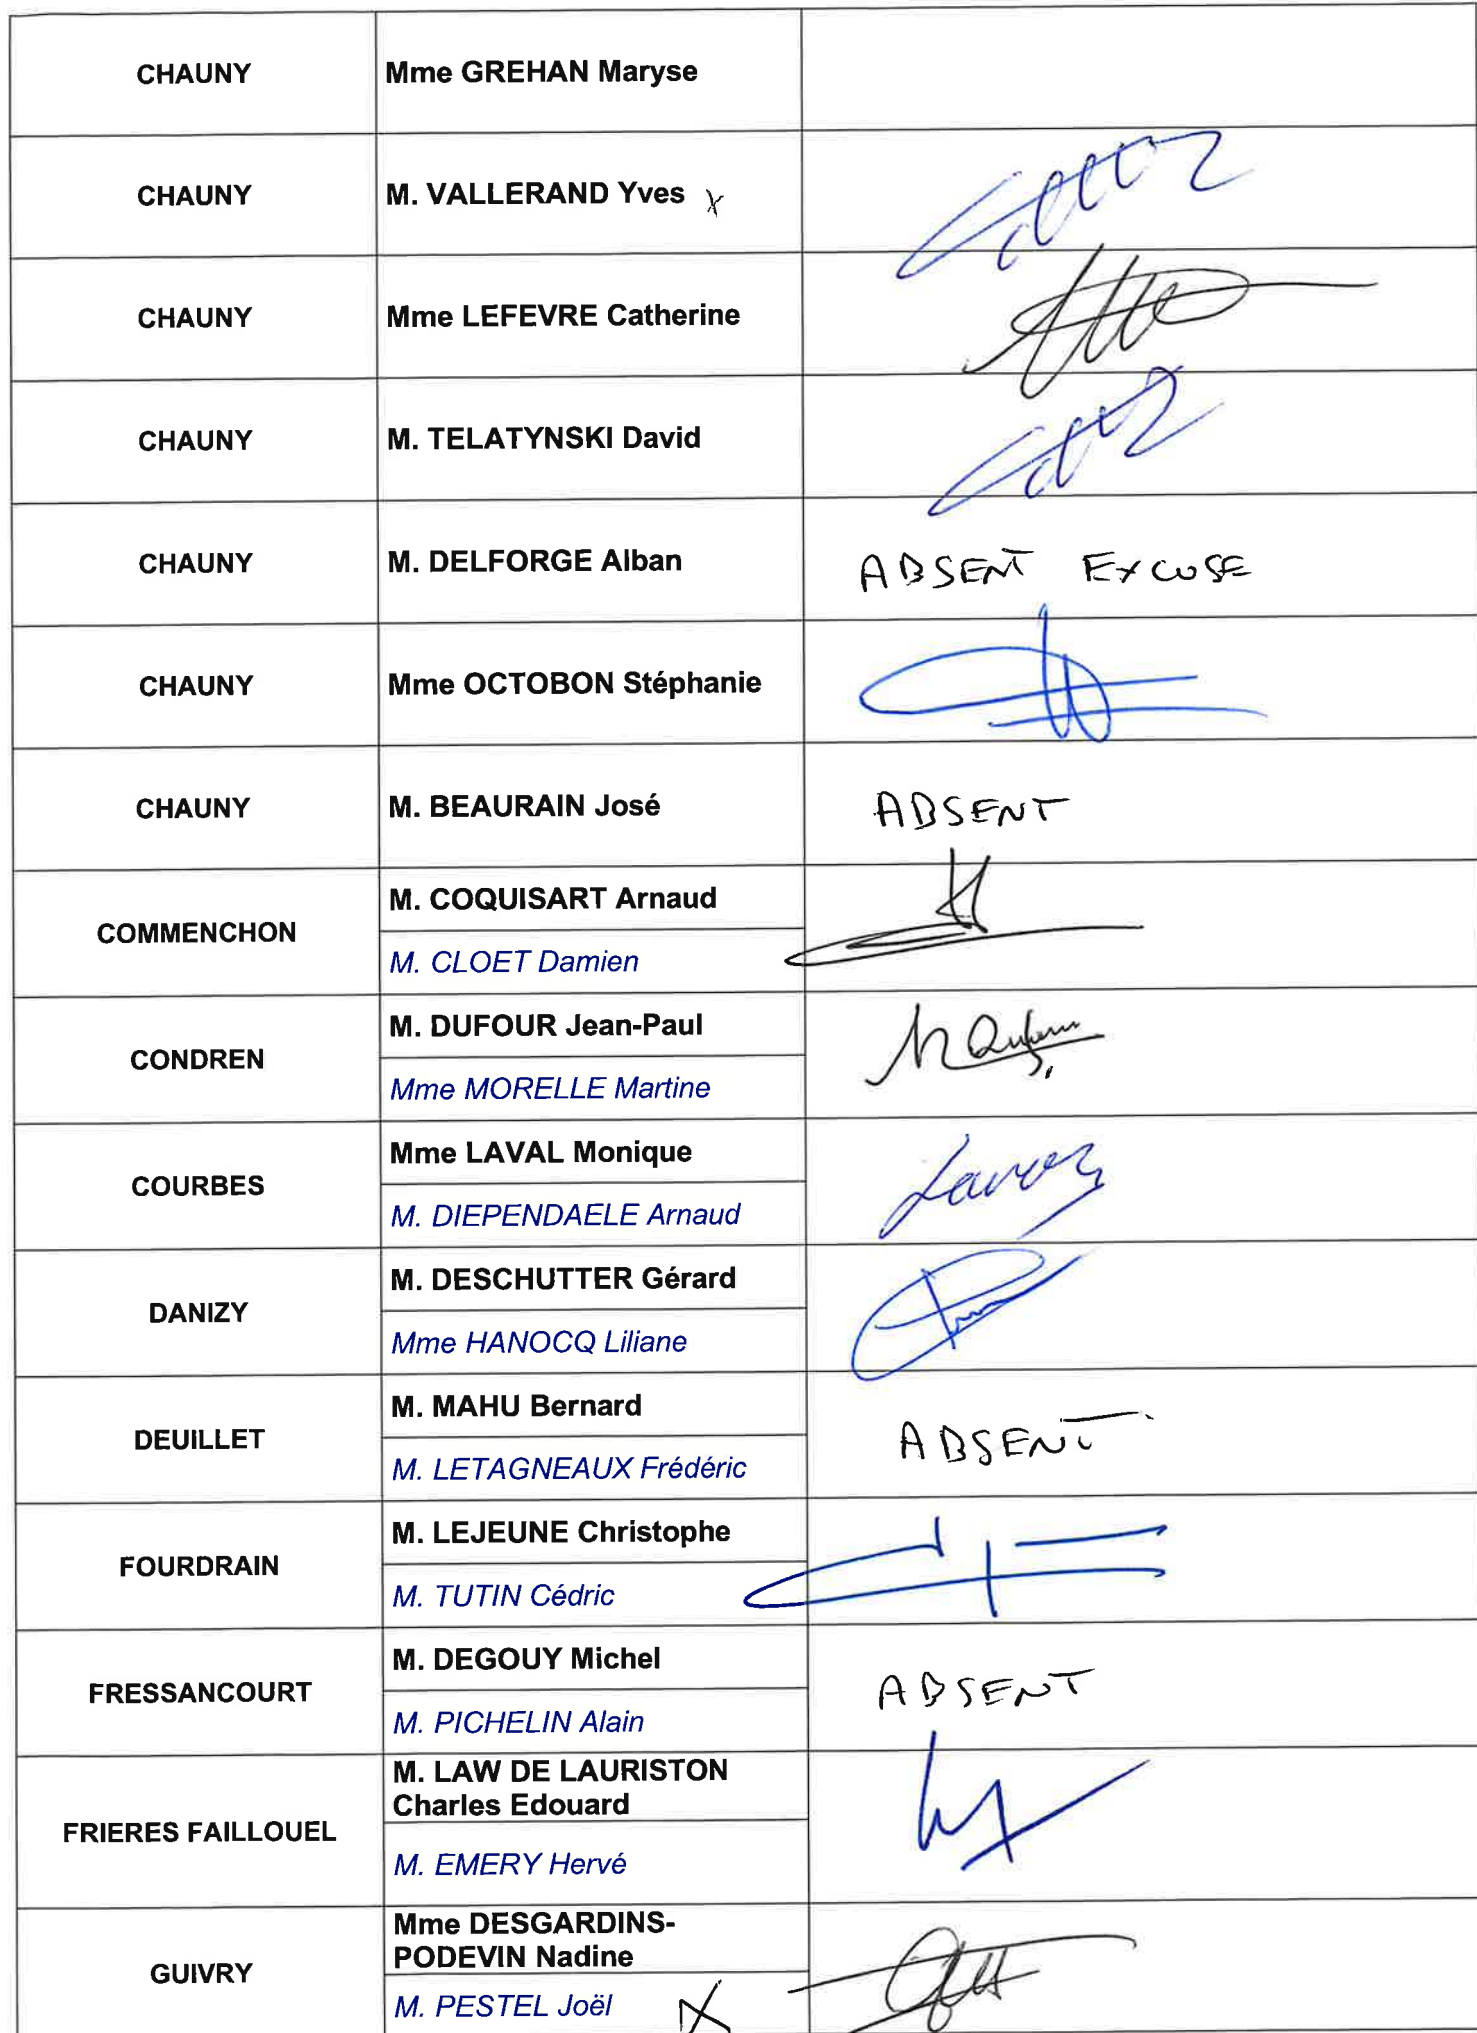 CHAUNY Mme GREHAN Maryse
CHAUNY M. VALLERAND Yves X
CHAUNY Mme LEFEVRE Catherine
CHAUNY M. TELATYNSKI David
CHAUNY M. DELFORGE Alban ABSENT EXCUSE
CHAUNY Mme OCTOBON Stéphanie
CHAUNY M. BEAURAIN José ABSENT
COMMENCHON
M. COQUISART Arnaud
M. CLOET Damien
CONDREN
M. DUFOUR Jean-Paul
Mme MORELLE Martine
COURBES
Mme LAVAL Monique
M. DIEPENDAELE Arnaud
DANIZY
M. DESCHUTTER Gérard
Mme HANOCQ Liliane
DEUILLET
M. MAHU Bernard
M. LETAGNEAUX Frédéric
ABSENT
FOURDRAIN
M. LEJEUNE Christophe
M. TUTIN Cédric
FRESSANCOURT
M. DEGOUY Michel
M. PICHELIN Alain
ABSENT
FRIERES FAILLOUEL
M. LAW DE LAURISTON
Charles Edouard
M. EMERY Hervé
GUIVRY
Mme DESGARDINS-
PODEVIN Nadine
M. PESTEL Joël X